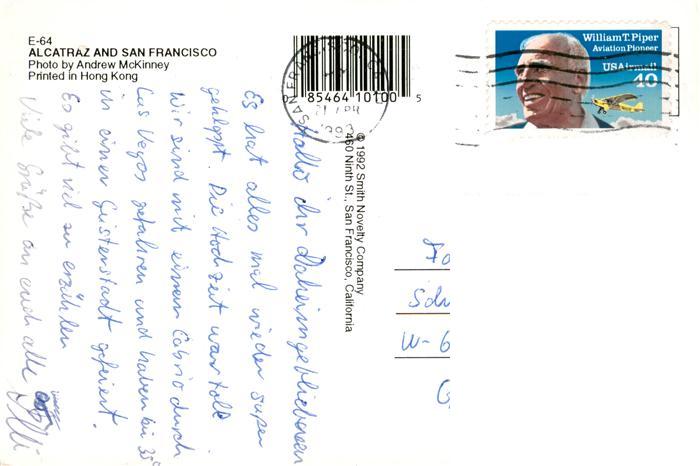 E-64
ALCATRAZ AND SAN FRANCISCO
Photo by Andrew McKinney
Printed in Hong Kong
0 85464 10100 5
© 1992 Smith Novelty Company
460 Ninth St., San Francisco, California
William T. Piper
Aviation Pioneer
USAirmail
40
SAN FRANCISCO
Hallo ihr Daheimgebliebenen
Es hat alles mal wieder super
geklappt. Die Hochzeit war toll
Wir sind mit einem Cabrio durch
Las Vegas gefahren und haben bis 35°
in einer Geisterstadt gefeiert.
Es gibt viel zu erzählen
Viele Grüße an euch alle
W-6